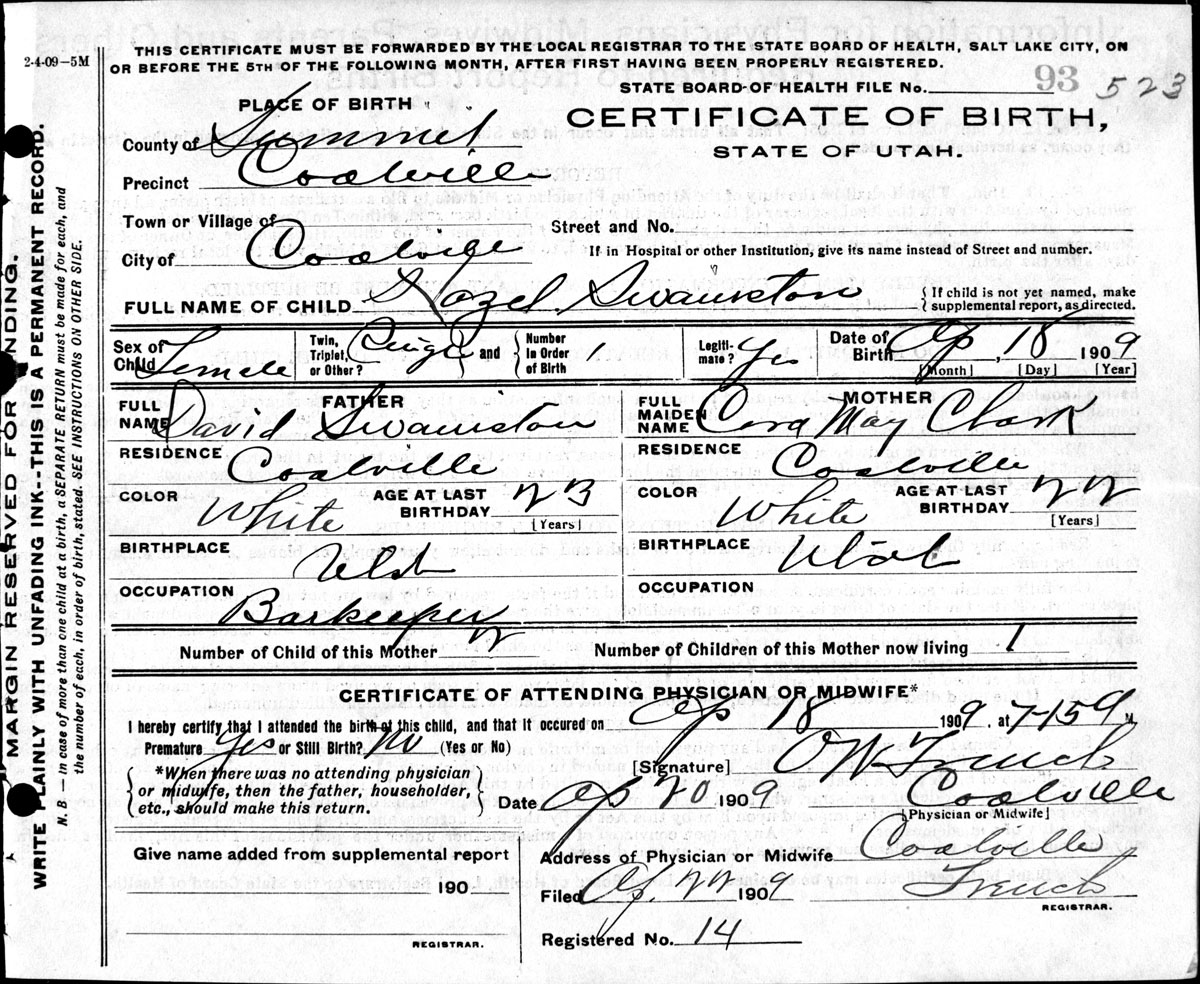 2-4-09-5M
THIS CERTIFICATE MUST BE FORWARDED BY THE LOCAL REGISTRAR TO THE STATE BOARD OF HEALTH, SALT LAKE CITY, ON
OR BEFORE THE 5TH OF THE FOLLOWING MONTH, AFTER FIRST HAVING BEEN PROPERLY REGISTERED.
STATE BOARD OF HEALTH FILE No. 93 523
PLACE OF BIRTH
CERTIFICATE OF BIRTH,
STATE OF UTAH.
County of Summit
Precinct Coalville
Town or Village of
Street and No.
City of Coalville
If in Hospital or other Institution, give its name instead of Street and number.
FULL NAME OF CHILD Hazel Swaniston { If child is not yet named, make
supplemental report, as directed.
Sex of Child Female Twin, Triplet, or Other? Single and Number In Order of Birth 1 Legiti-mate? Yes Date of Birth Ap, 18 1909
[Month] [Day] [Year]
FATHER MOTHER
FULL NAME David Swaniston FULL MAIDEN NAME Cora May Clark
RESIDENCE Coalville RESIDENCE Coalville
COLOR White AGE AT LAST BIRTHDAY 23 [Years] COLOR White AGE AT LAST BIRTHDAY 22 [Years]
BIRTHPLACE Utah BIRTHPLACE Utah
OCCUPATION Barkeeper OCCUPATION
Number of Child of this Mother 2 Number of Children of this Mother now living 1
CERTIFICATE OF ATTENDING PHYSICIAN OR MIDWIFE*
I hereby certify that I attended the birth of this child, and that it occured on Ap 18 1909, at 7-15 a M.
Premature Yes or Still Birth? No (Yes or No)
[Signature] French
*When there was no attending physician
or midwife, then the father, householder,
etc., should make this return.
Date Ap 20 1909 Coalville
[Physician or Midwife]
Give name added from supplemental report
190
REGISTRAR.
Address of Physician or Midwife Coalville
Filed Ap. 22 1909 French
REGISTRAR.
Registered No. 14
MARGIN RESERVED FOR BINDING.
WRITE PLAINLY WITH UNFADING INK--THIS IS A PERMANENT RECORD.
N. B. — In case of more than one child at birth, a SEPARATE RETURN must be made for each, and
the number of each, in order of birth, stated. SEE INSTRUCTIONS ON OTHER SIDE.